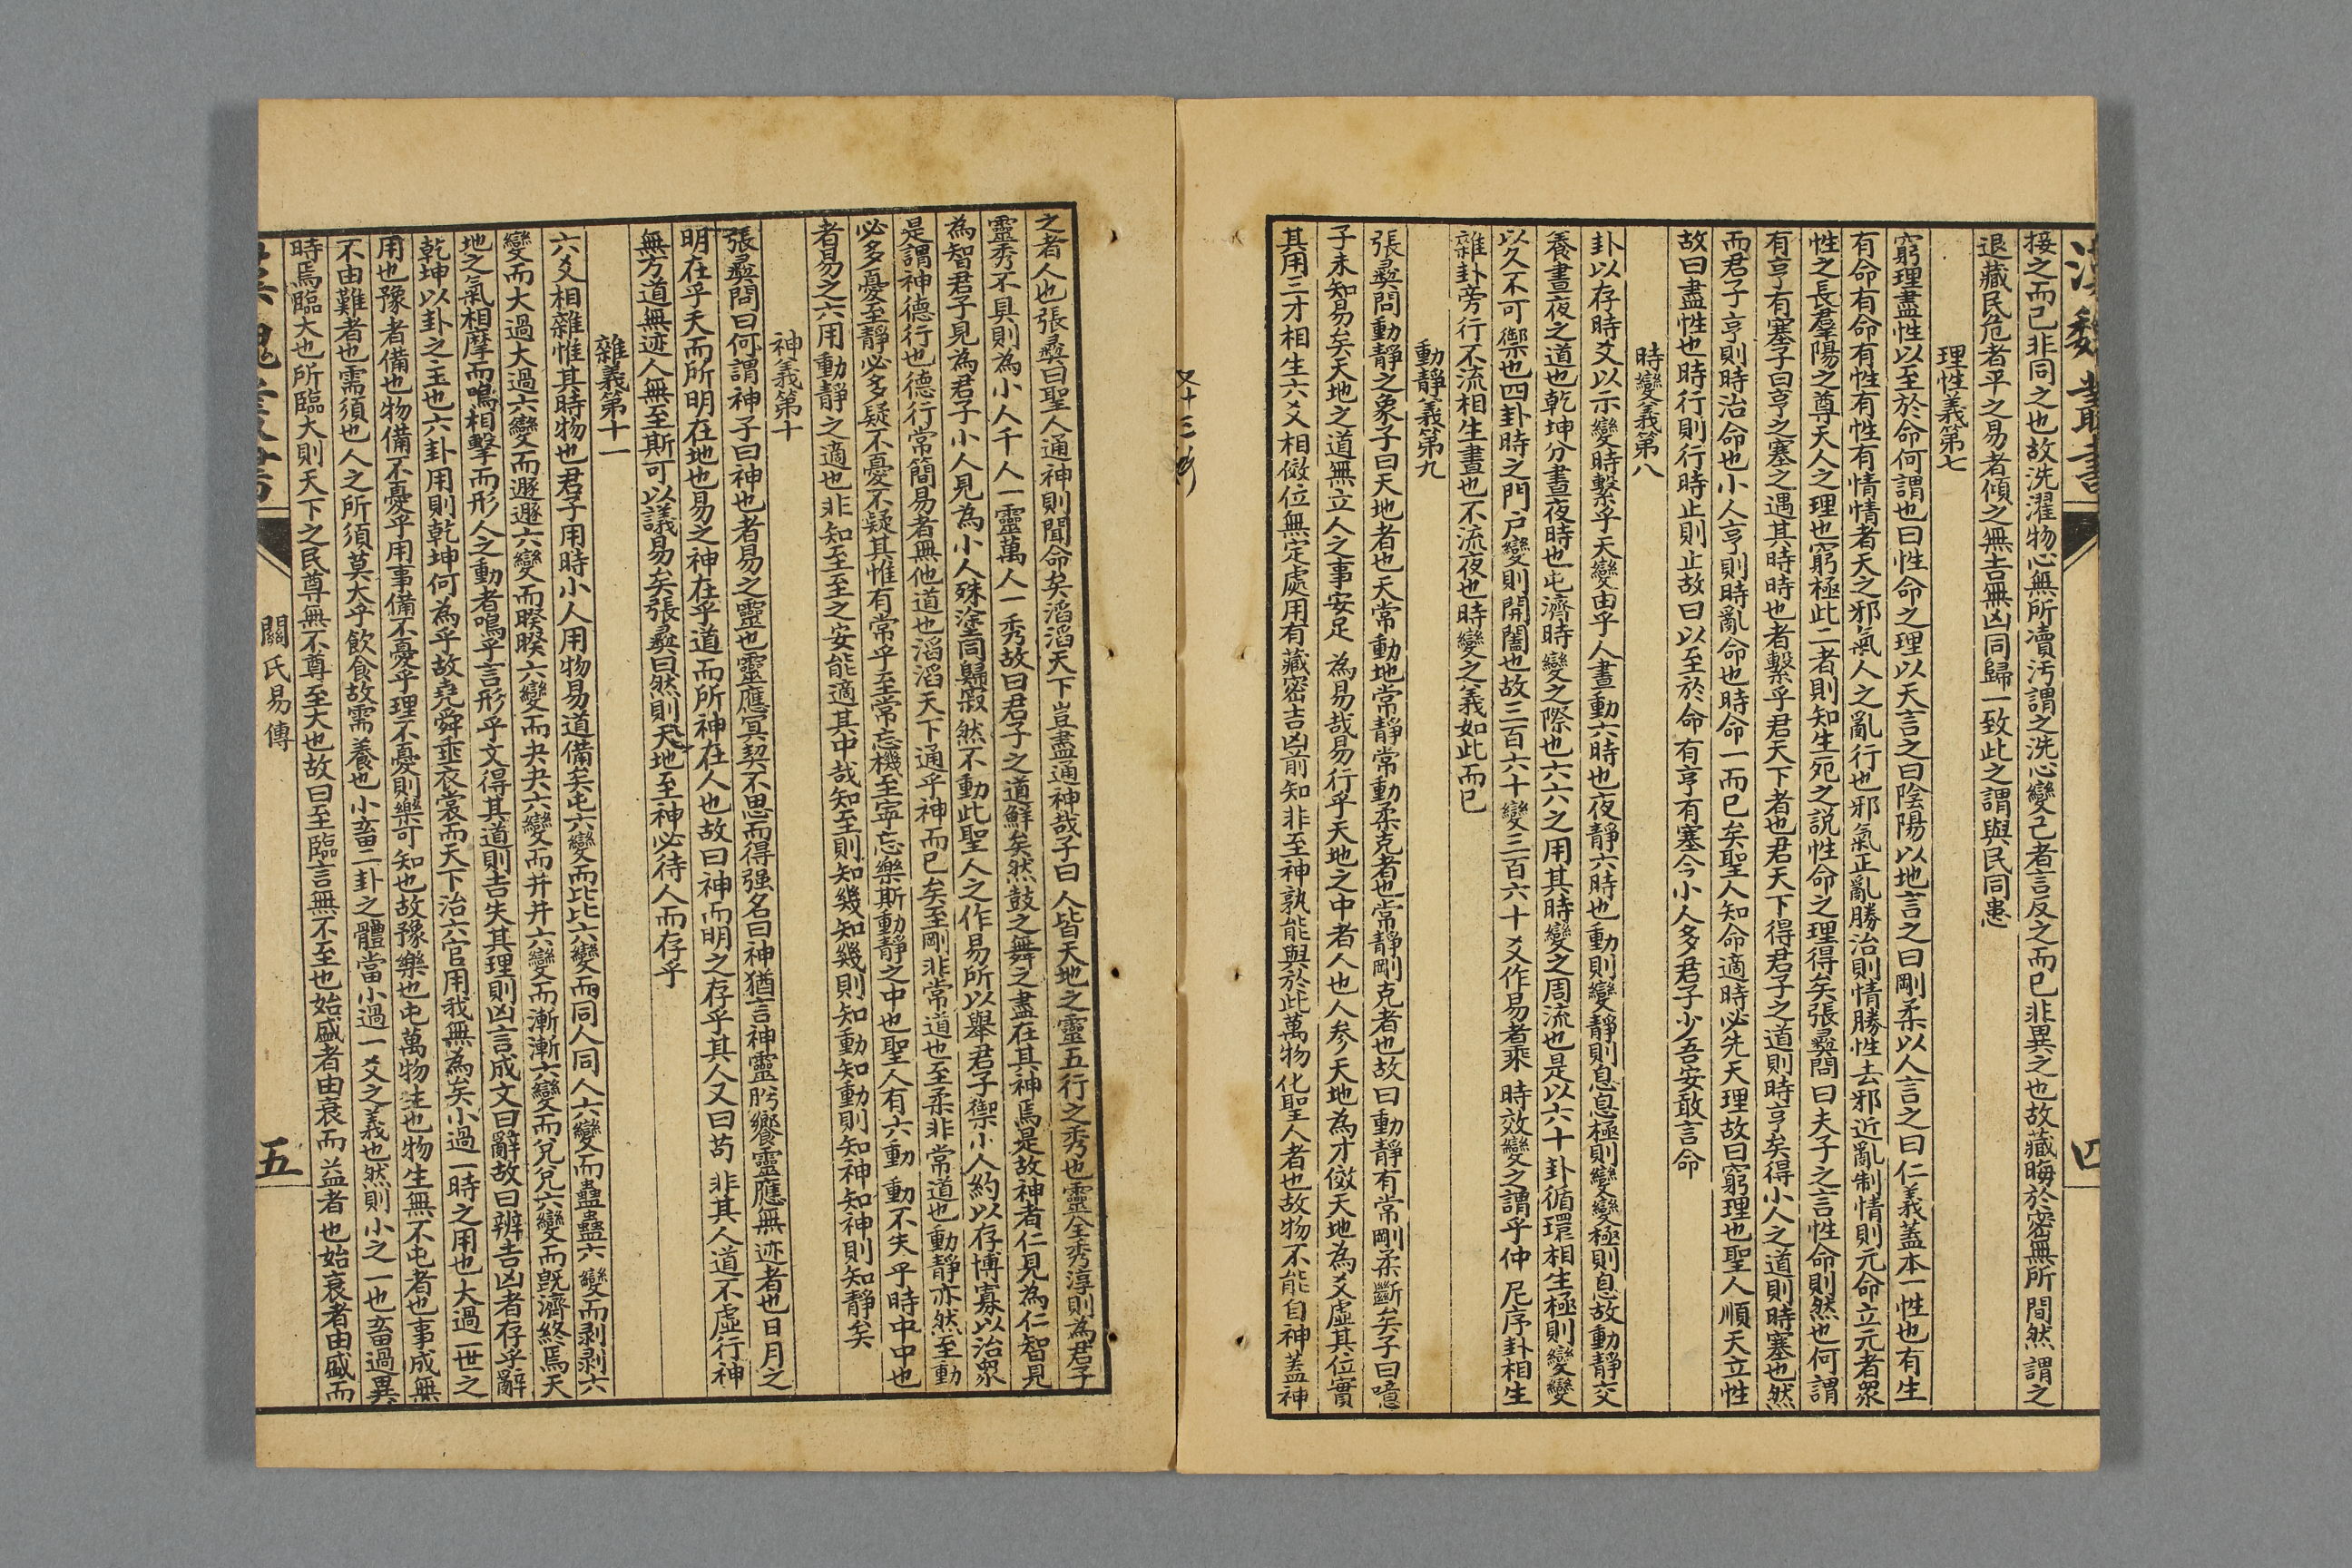 漢魏叢書
四
接之而已非同之也故洗濯物心無所瀆汚謂之洗心變己者言反之而已非異之也故藏晦於密無所間然謂之
退藏民危者平之易者傾之無吉無凶同歸一致此之謂與民同患
理性義第七
窮理盡性以至於命何謂也曰性命之理以天言之曰陰陽以地言之曰剛柔以人言之曰仁義蓋本一性也有生
有命有命有性有性有情情者天之邪氣人之亂行也邪氣正亂勝治則情勝性去邪近亂制情則元命立元者衆
性之長羣陽之尊天人之理也窮極此二者則知生死之説性命之理得矣張彝問曰夫子之言性命則然也何謂
有亨有塞子曰亨之塞之遇其時時也者繫乎君天下者也君天下得君子之道則時亨矣得小人之道則時塞也然
而君子亨則時治命也小人亨則時亂命也時命一而已矣聖人知命適時必先天理故曰窮理也聖人順天立性
故曰盡性也時行則行時止則止故曰以至於命有亨有塞今小人多君子少吾安敢言命
時變義第八
卦以存時爻以示變時繫乎天變由乎人晝動六時也夜靜六時也動則變靜則息息極則變變極則息故動靜交
養晝夜之道也乾坤分晝夜時也屯濟時變之際也六六之用其時變之周流也是以六十卦循環相生極則變變
以久不可禦也四卦時之門戶變則開闔也故三百六十變三百六十爻作易者乘時效變之謂乎仲尼序卦相生
雜卦旁行不流相生晝也不流夜也時變之義如此而已
動靜義第九
張彝問動靜之象子曰天地者也天常動地常靜常動柔克者也常靜剛克者也故曰動靜有常剛柔斷矣子曰噫
子未知易矣天地之道無立人之事安足為易哉易行乎天地之中者人也人參天地為才倣天地為爻虛其位實
其用三才相生六爻相倣位無定處用有藏密吉凶前知非至神孰能與於此萬物化聖人者也故物不能自神蓋神
之者人也張彝曰聖人通神則聞命矣滔滔天下豈盡通神哉子曰人皆天地之靈五行之秀也靈全秀淳則為君子
靈秀不具則為小人千人一靈萬人一秀故曰君子之道鮮矣然鼓之舞之盡在其神焉是故神者仁見為仁智見
為智君子見為君子小人見為小人殊塗同歸寂然不動此聖人之作易所以舉君子禦小人約以存博寡以治衆
是謂神德行也德行常簡易者無他道也滔滔天下通乎神而已矣至剛非常道也至柔非常道也動靜亦然至動
必多憂至靜必多疑不憂不疑其惟有常乎至常忘機至寧忘樂斯動靜之中也聖人有六動動不失乎時中中也
者易之六用動靜之適也非知至至之安能適其中哉知至則知幾知幾則知動知動則知神知神則知靜矣
神義第十
張彝問曰何謂神子曰神也者易之靈也靈應冥契不思而得强名曰神猶言神靈肹蠁靈應無迹者也日月之
明在乎天而所明在地也易之神在乎道而所神在人也故曰神而明之存乎其人又曰苟非其人道不虛行神
無方道無迹人無至斯可以議易矣張彝曰然則天地至神必待人而存乎
雜義第十一
六爻相雜惟其時物也君子用時小人用物易道備矣屯六變而比比六變而同人同人六變而蠱蠱六變而剥剥六
變而大過大過六變而遯遯六變而暌暌六變而夬夬六變而井井六變而漸漸六變而兌兌六變而旣濟終焉天
地之氣相摩而鳴相擊而形人之動者鳴乎言形乎文得其道則吉失其理則凶言成文曰辭故曰辨吉凶者存乎辭
乾坤以卦之主也六卦用則乾坤何為乎故堯舜垂衣裳而天下治六官用我無為矣小過一時之用也大過一世之
用也豫者備也物備不憂乎用事備不憂乎理不憂則樂可知也故豫樂也屯萬物生也物生無不屯者也事成無
不由難者也需須也人之所須莫大乎飲食故需養也小畜二卦之體當小過一爻之義也然則小之一也畜過異
時焉臨大也所臨大則天下之民尊無不尊至大也故曰至臨言無不至也始盛者由衰而益者也始衰者由盛而
關氏易傳
五